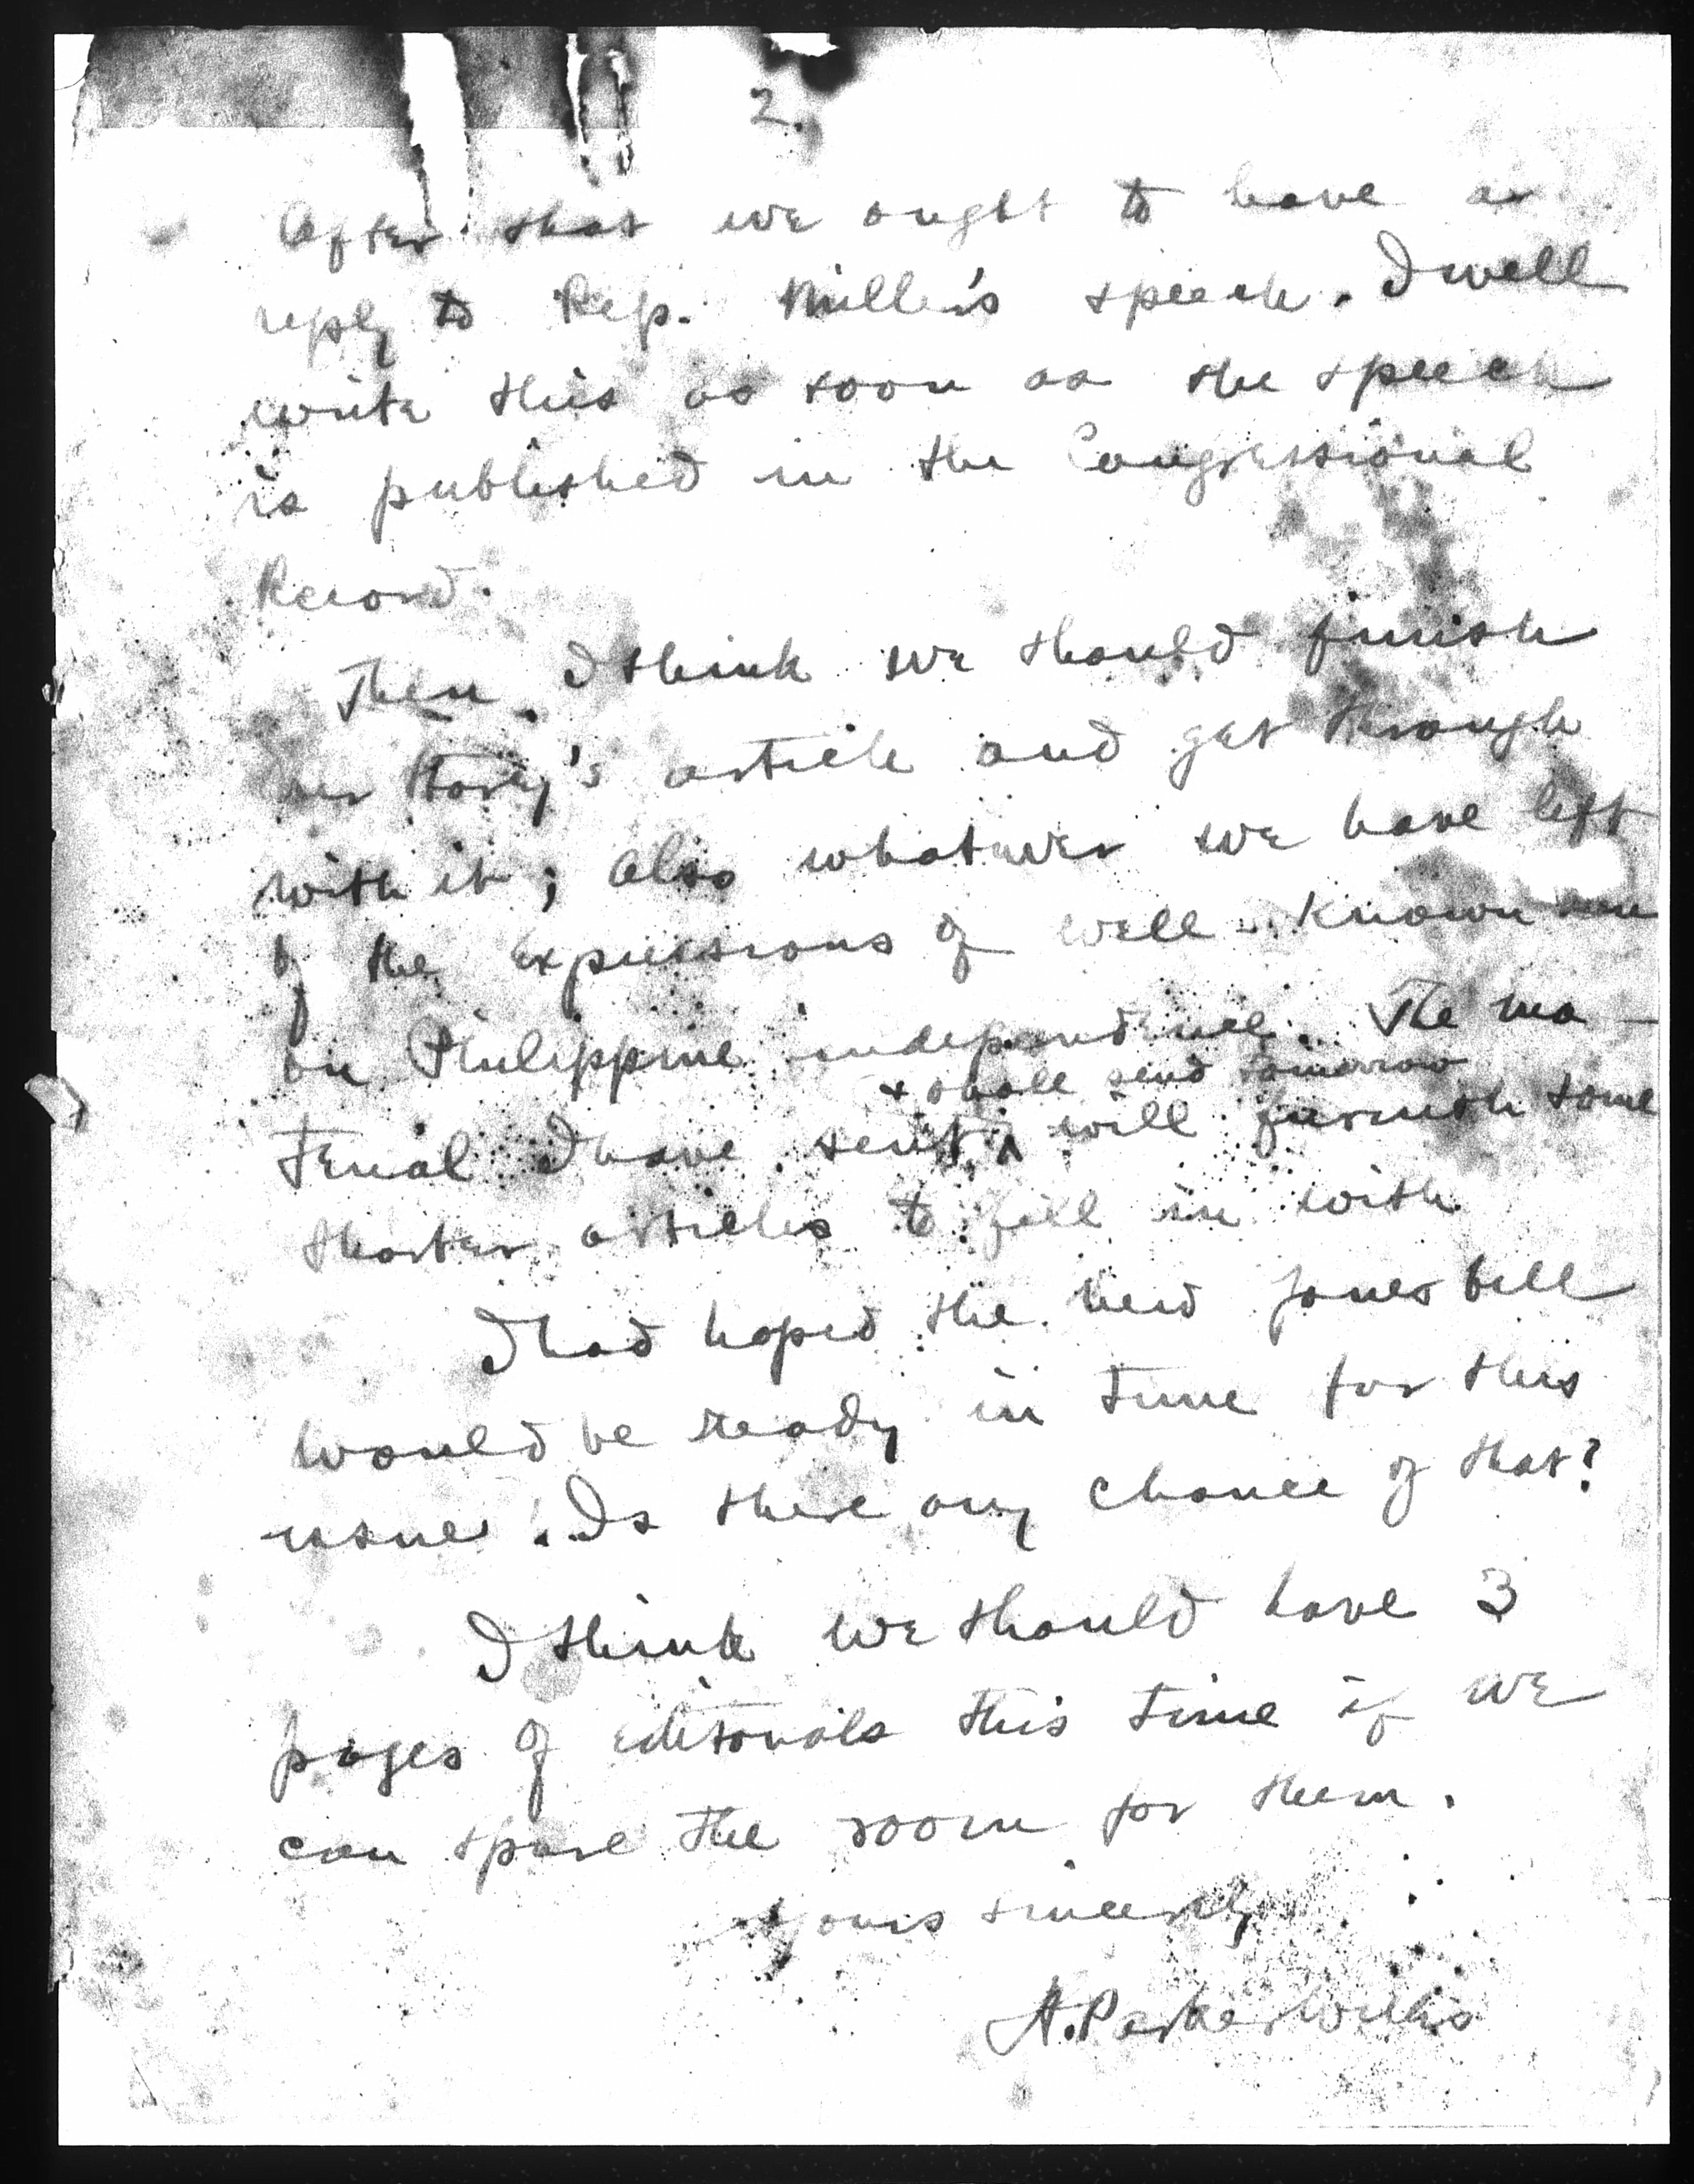 2.
After that we ought to have a
reply to Rep. Miller's speech. I will
write this as soon as the speech
is published in the Congressional
Record.
Then, I think we should finish
Mr Storey's article and get through
with it; also whatever we have left
of the expressions of well known men
on Philippine independence. The ma-
& shall send tomorrow
terial I have sent, ^ will furnish some
shorter articles to fill in with
I had hoped the new Jones bill
would be ready in time for this
issue. Is there any chance of that?
I think we should have 3
pages of editorials this time if we
can spare the room for them.
Yours sincerely
H. Parker Willis